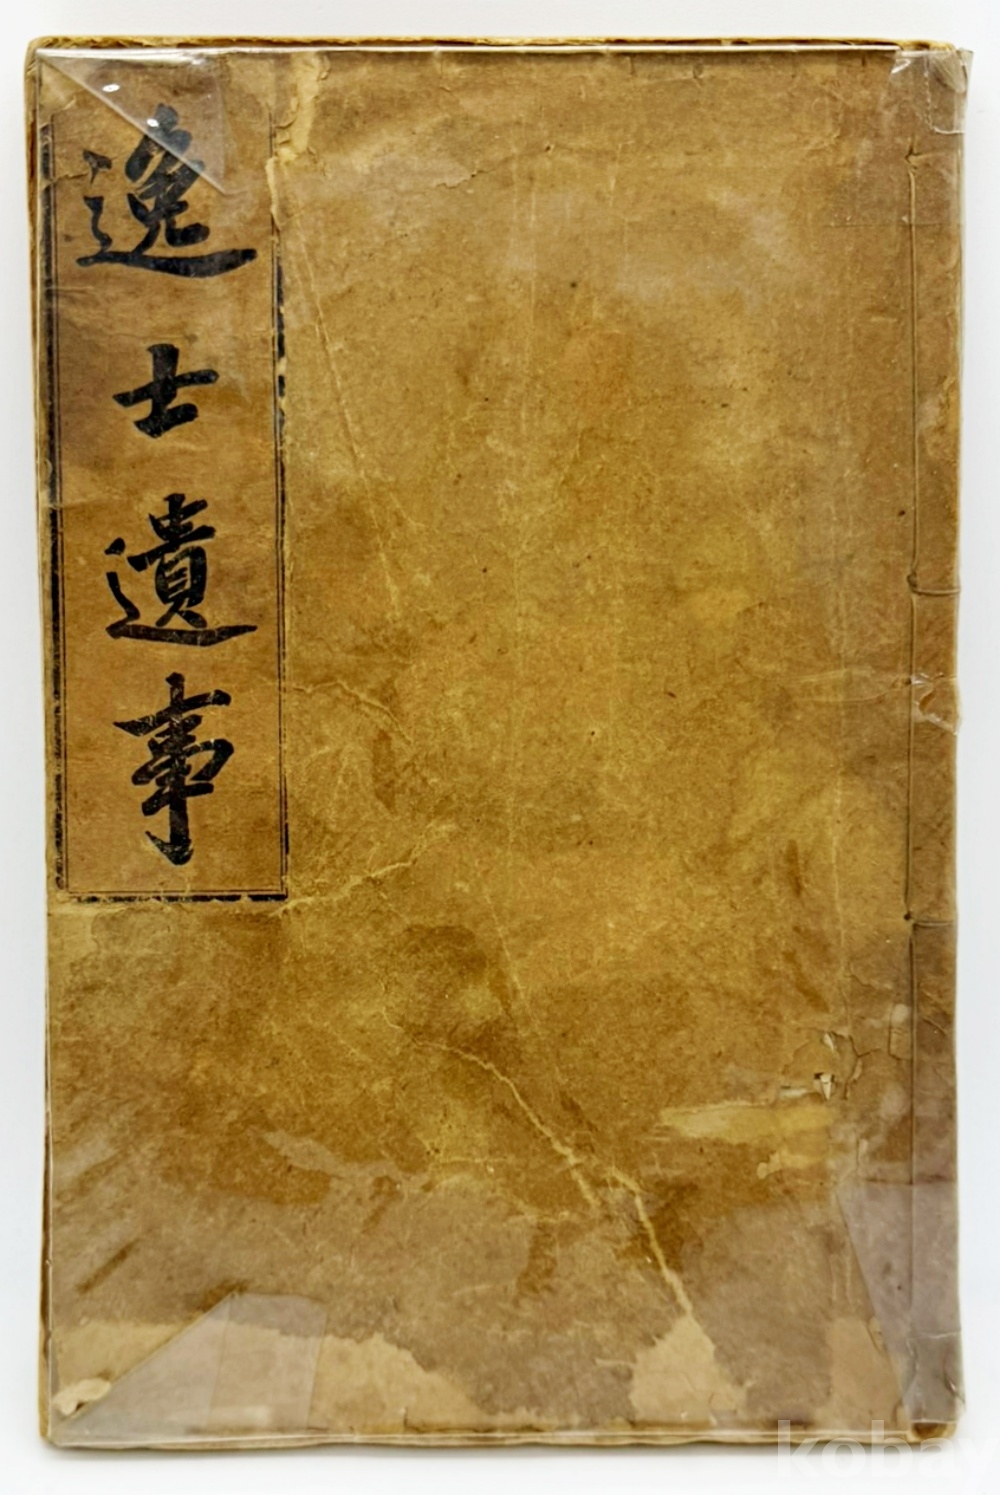 逸士遺事
kobay